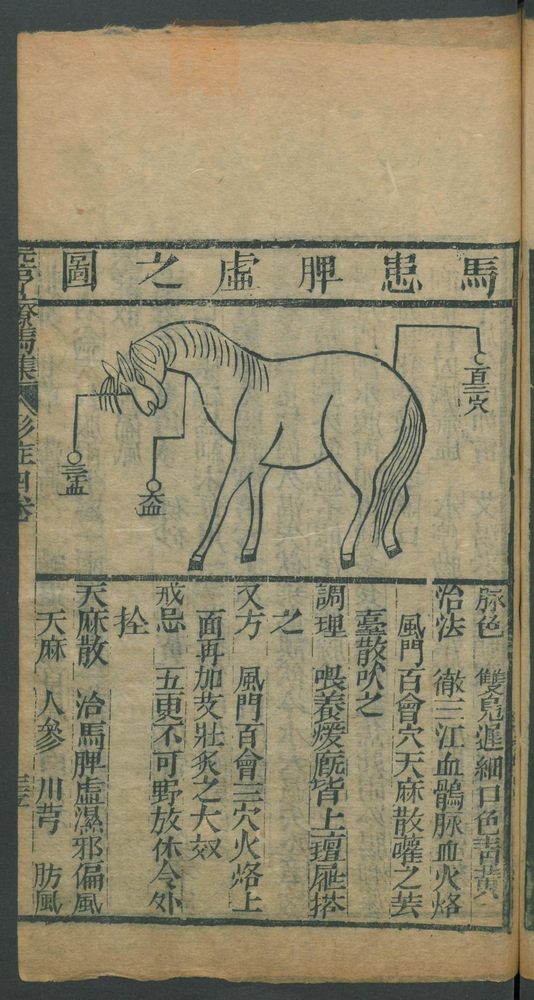 馬患脾虛之圖
百會穴
三江血
大血
脉色　雙凫遲細口色青黃
治法　徹三江血鶻脉血火烙
風門百會穴天麻散嚾之芸
薹散吹之
調理　喂養煖廐脊上氊雁搭
之
又方　風門百會三穴火烙上
面再加艾壯炙之大效
戒忌　五更不可野放休令外
拴
天麻散　治馬脾虛濕邪偏風
天麻　人參　川芎　防風
療馬集